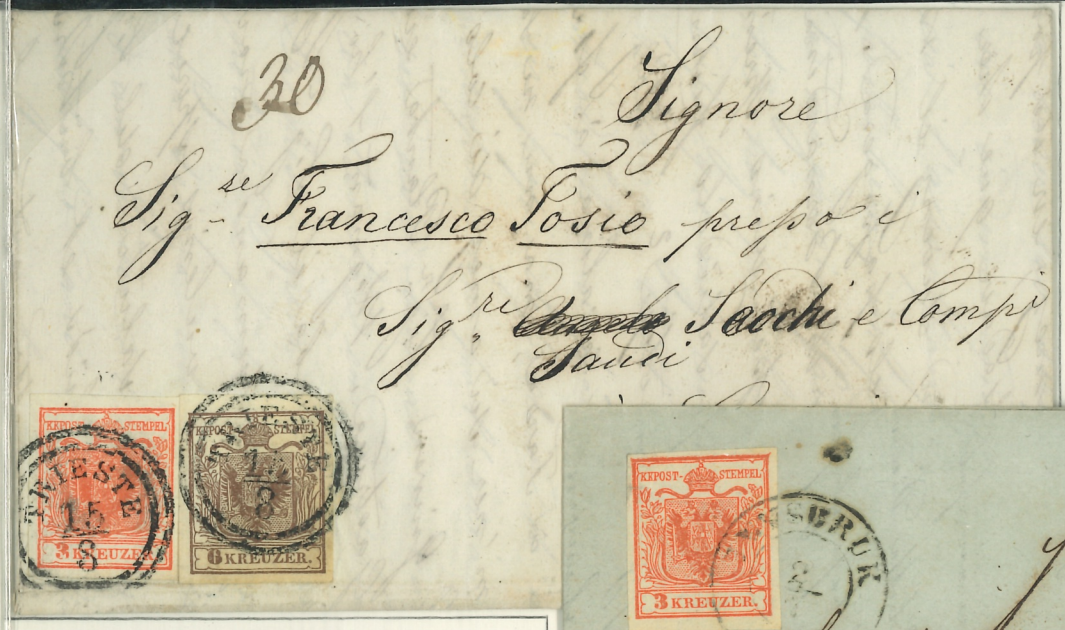 30
Signore
Sig.re Francesco Tosio presso i
Sig.ri Sacchi e Comp.i
KKPOST-STEMPEL
3 KREUZER.
TRIESTE
15
8
KKPOST-STEMPEL
6 KREUZER.
15
8
KKPOST-STEMPEL
3 KREUZER.
INNSBRUK